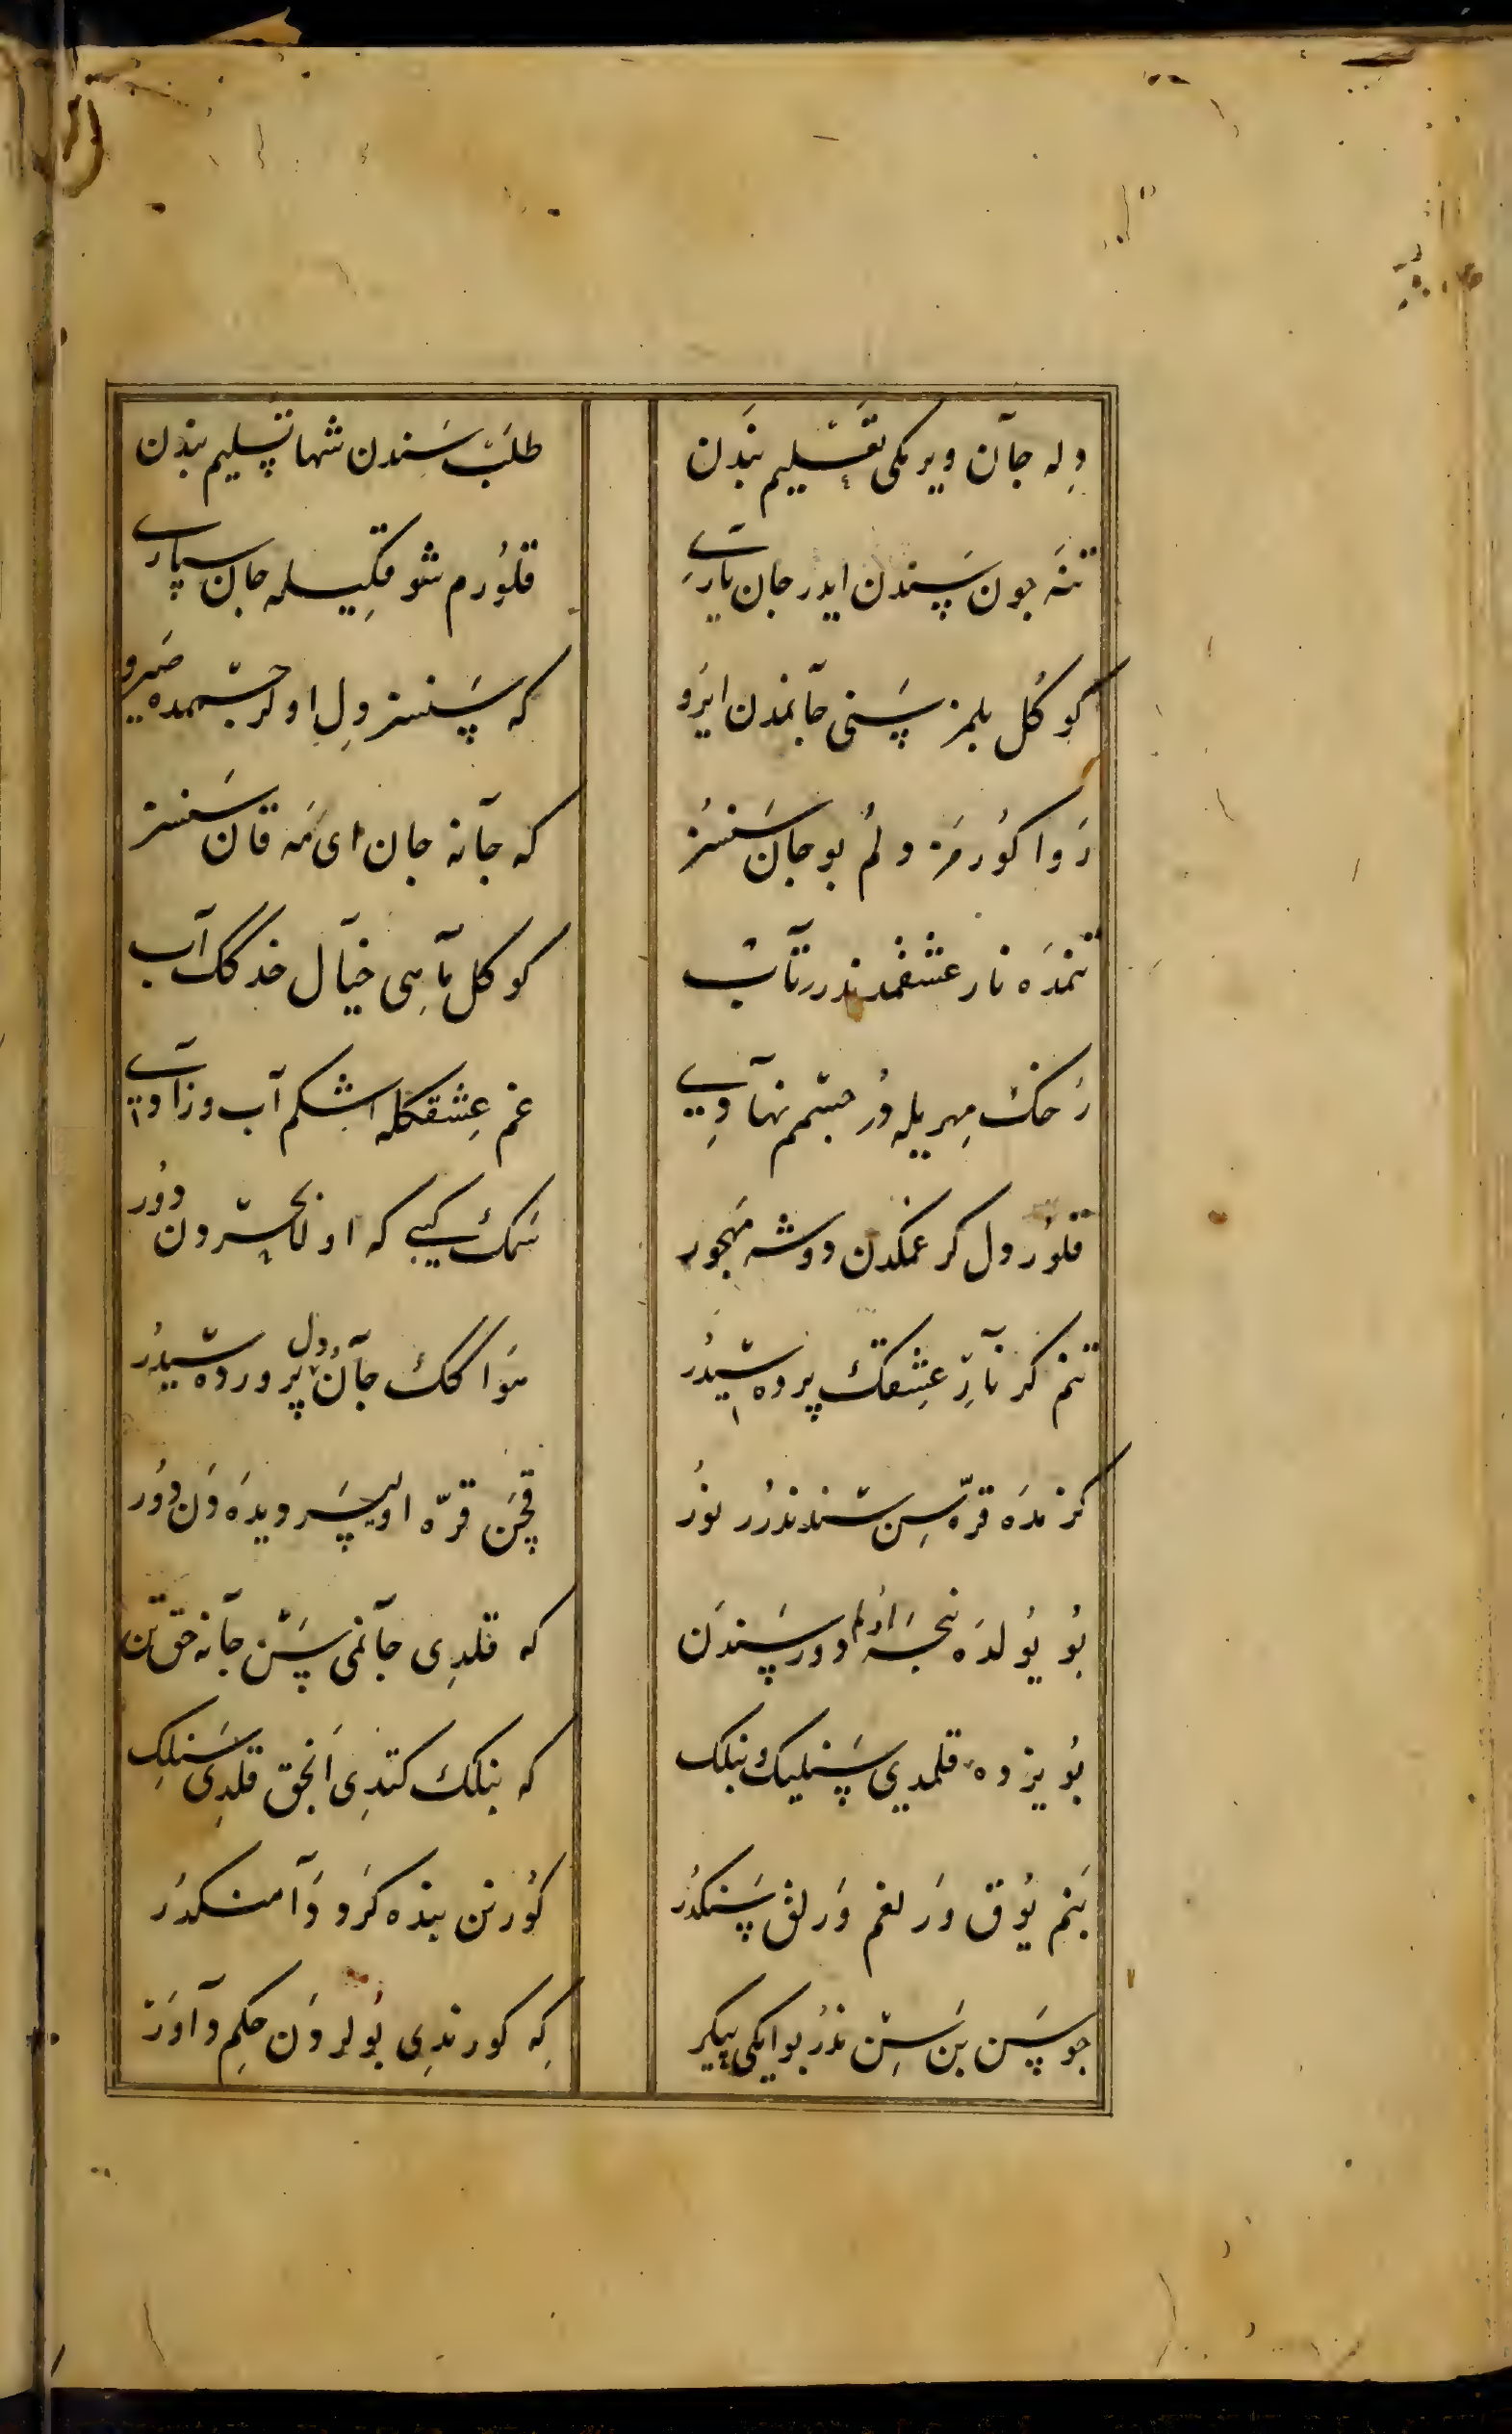 دِله جآن ویرمکی تقسلیم بندن
طلب سَندن شها تسلیم بندن
تنَه جون سَندن ایدر جان یاری
قلوُرم شوقکِیله جان سپاری
کوکُل بلمز سَنی جآنمدن ایرُو
که سَنسز دِل اولر جسمده صیرو
رَوا کوُرمَز دلمُ بو جان سَنسُز
که جآنه جان ای مَه قان سَنسز
تنمدَه نار عشقمدندر تآب
کوکل مآهی خیآل خدکک آب
رُخک مِهریله دُر جشم نهآوی
غم عِشقکله اشکم آب و زاوی
قلوُر دل کر غمکدن دوشه مَهجور
سَمک کیبی که اوله بحردن دوُر
تنم کر نآرِ عِشقک پرده سیدُر
هَوا کک جآن و دل پروردَه سیدُر
کزمدَه قرّه سِن سَندندُرر نوُر
قچَن قرّه اولیسَر دیدَه دَن دوُر
بُو یوُلدَه نیجَه اَرلم دور سَندَن
که قلدِی جآنمی سَن جآنه حق تن
بُو یزده قلمدی سَنلیک و بنلک
که بنلک کتدِی اَنجق قلدِی سَنلِک
بَنم یوُق وَرلغم وَرلق سَنکدُر
کوُرنن بنده کَرو دَآمنکدُر
جو سَن بَن سِن ندرُ بو ایکی پیکر
کِه کورندِی بُولردَن حکِم دآوَر